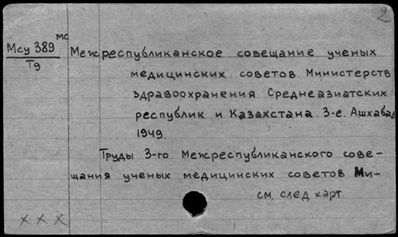 2
мс
Мсу 389
Т9
Межреспубликанское совещание ученых
медицинских советов Министерств
здравоохранения Среднеазиатских
республик и Казахстана. 3-е. Ашхабад
1949.
Труды 3-го Межреспубликанского сове-
щания ученых медицинских советов Ми-
см. след карт.
х х х